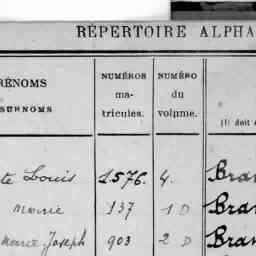 RÉPERTOIRE ALPHA
RÉNOMS
SURNOMS.
NUMÉROS
ma-
tricules.
NUMÉRO
du
volume.
(Il doit
te Louis 1576. 4. Bran
Marie 137 1 D Bran
Marie Joseph 903 2 D Bran